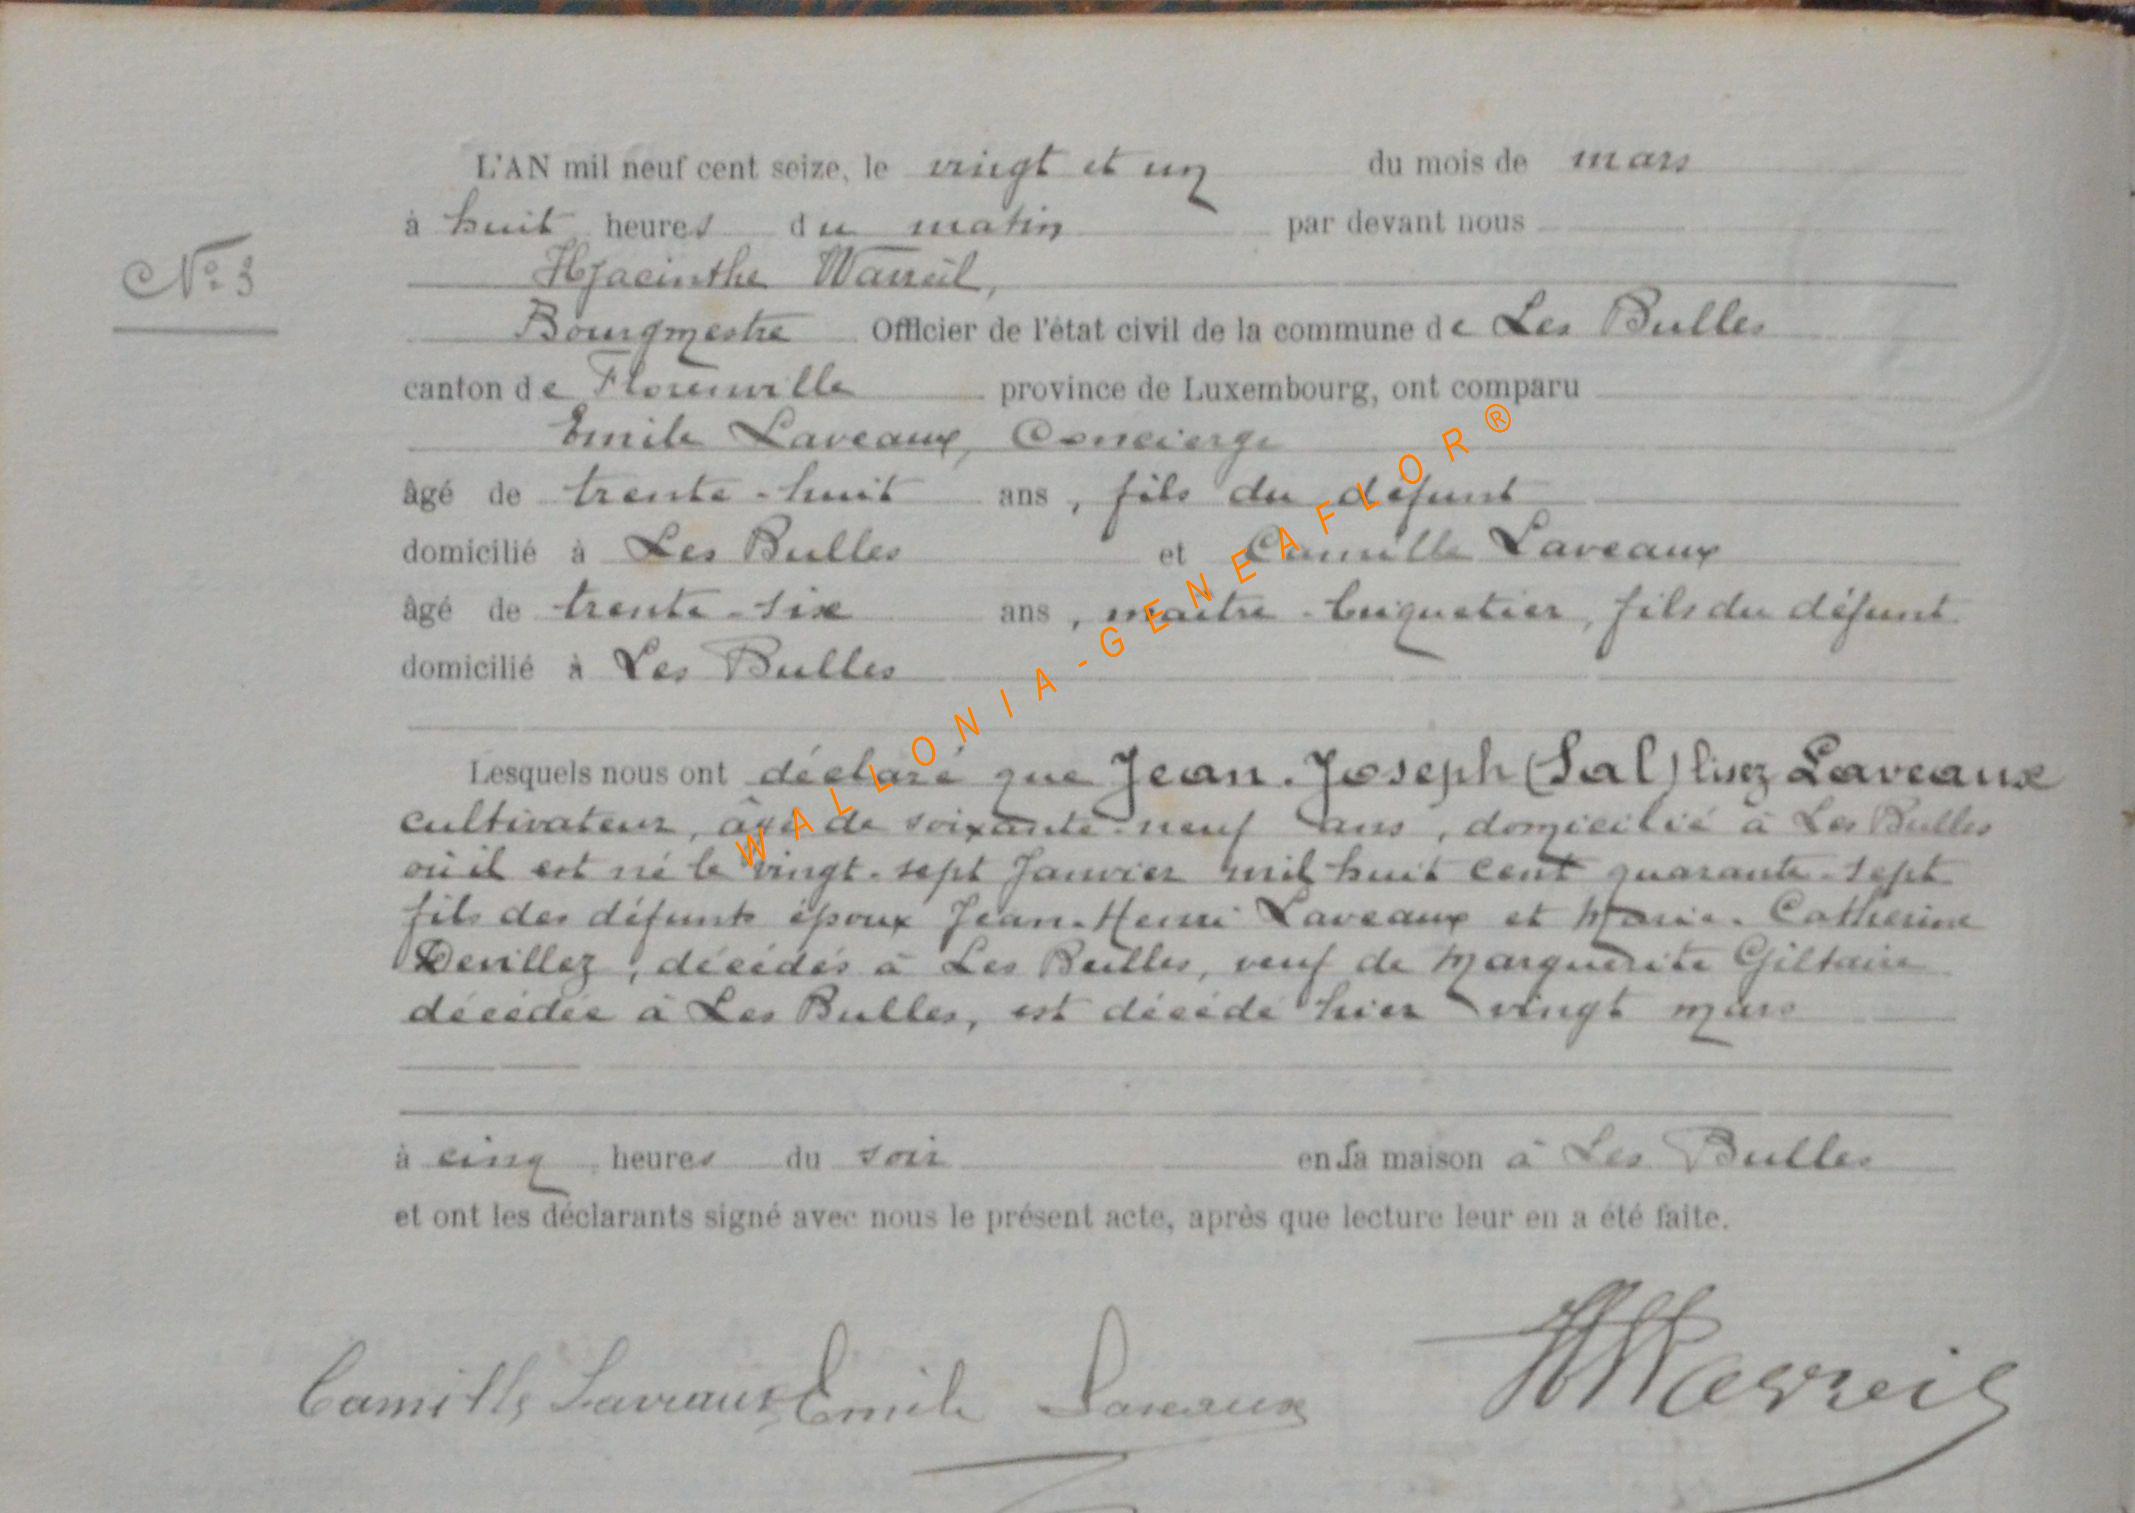 L'AN mil neuf cent seize, le vingt et un du mois de mars
à huit heures du matin par devant nous
N° 3
Hyacinthe Warreil,
Bourgmestre Officier de l'état civil de la commune de Les Bulles
canton de Florenville province de Luxembourg, ont comparu
Emile Laveaux, Concierge
âgé de trente-huit ans, fils du défunt
domicilié à Les Bulles et Camille Laveaux
âgé de trente-six ans, maître-briquetier, fils du défunt
domicilié à Les Bulles
Lesquels nous ont déclaré que Jean-Joseph (Sal) lisez Laveaux
cultivateur, âgé de soixante-neuf ans, domicilié à Les Bulles
où il est né le vingt-sept Janvier mil huit cent quarante-sept
fils des défunts époux Jean-Henri Laveaux et Marie-Catherine
Devillez, décédés à Les Bulles, veuf de Marguerite Giltaire
décédée à Les Bulles, est décédé hier vingt mars
à cinq heures du soir en sa maison à Les Bulles
et ont les déclarants signé avec nous le présent acte, après que lecture leur en a été faite.
Camille Laveaux Emile Laveaux HWarreil
WALLONIA-GENEAFLOR®